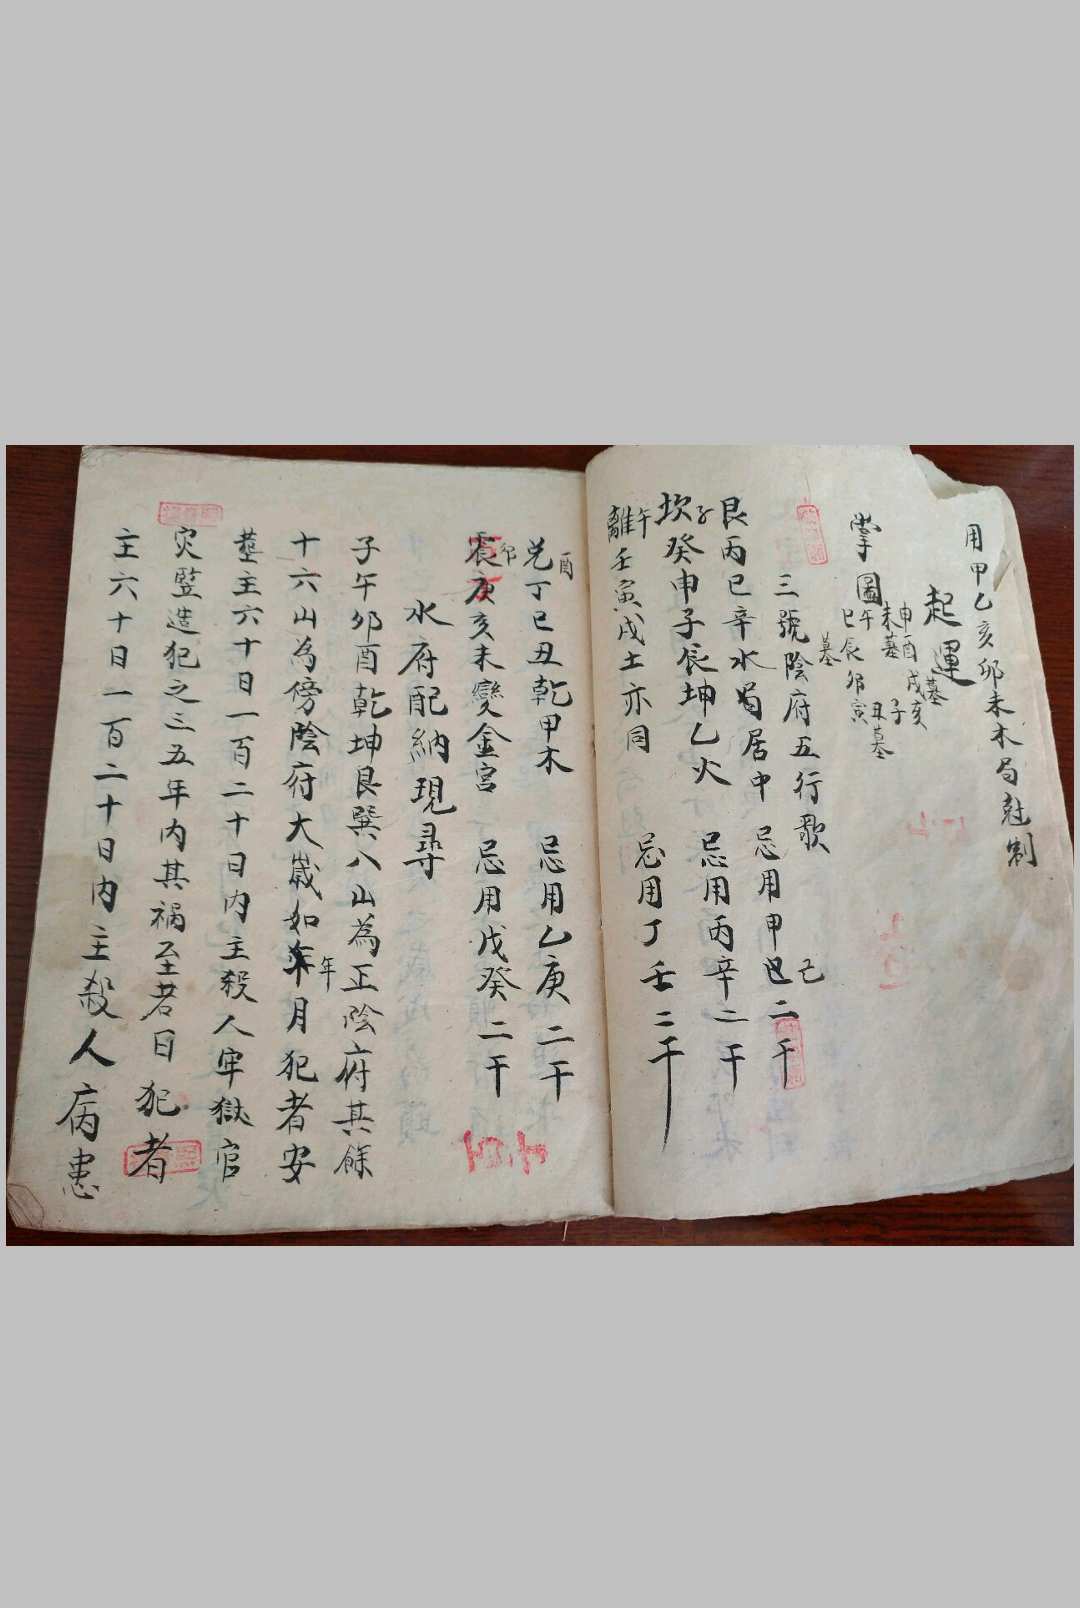 用甲乙亥卯未木局尅制
起運
掌圖
巳午未申酉戌亥子丑寅卯辰
墓墓墓墓
三號陰府五行歌
艮丙巳辛水局居中 忌用甲己二干
坎子癸申子辰坤乙火 忌用丙辛二干
離午壬寅戌土亦同 忌用丁壬二干
兌酉丁巳丑乾甲木 忌用乙庚二干
震卯庚亥未變金宮 忌用戊癸二干
水府配納現尋
子午卯酉乾坤艮巽八山為正陰府其餘
十六山為傍陰府大歲如年月犯者安
塟主六十日一百二十日內主殺人牢獄官
灾豎造犯之三五年內其禍至若日犯者
主六十日一百二十日內主殺人病患